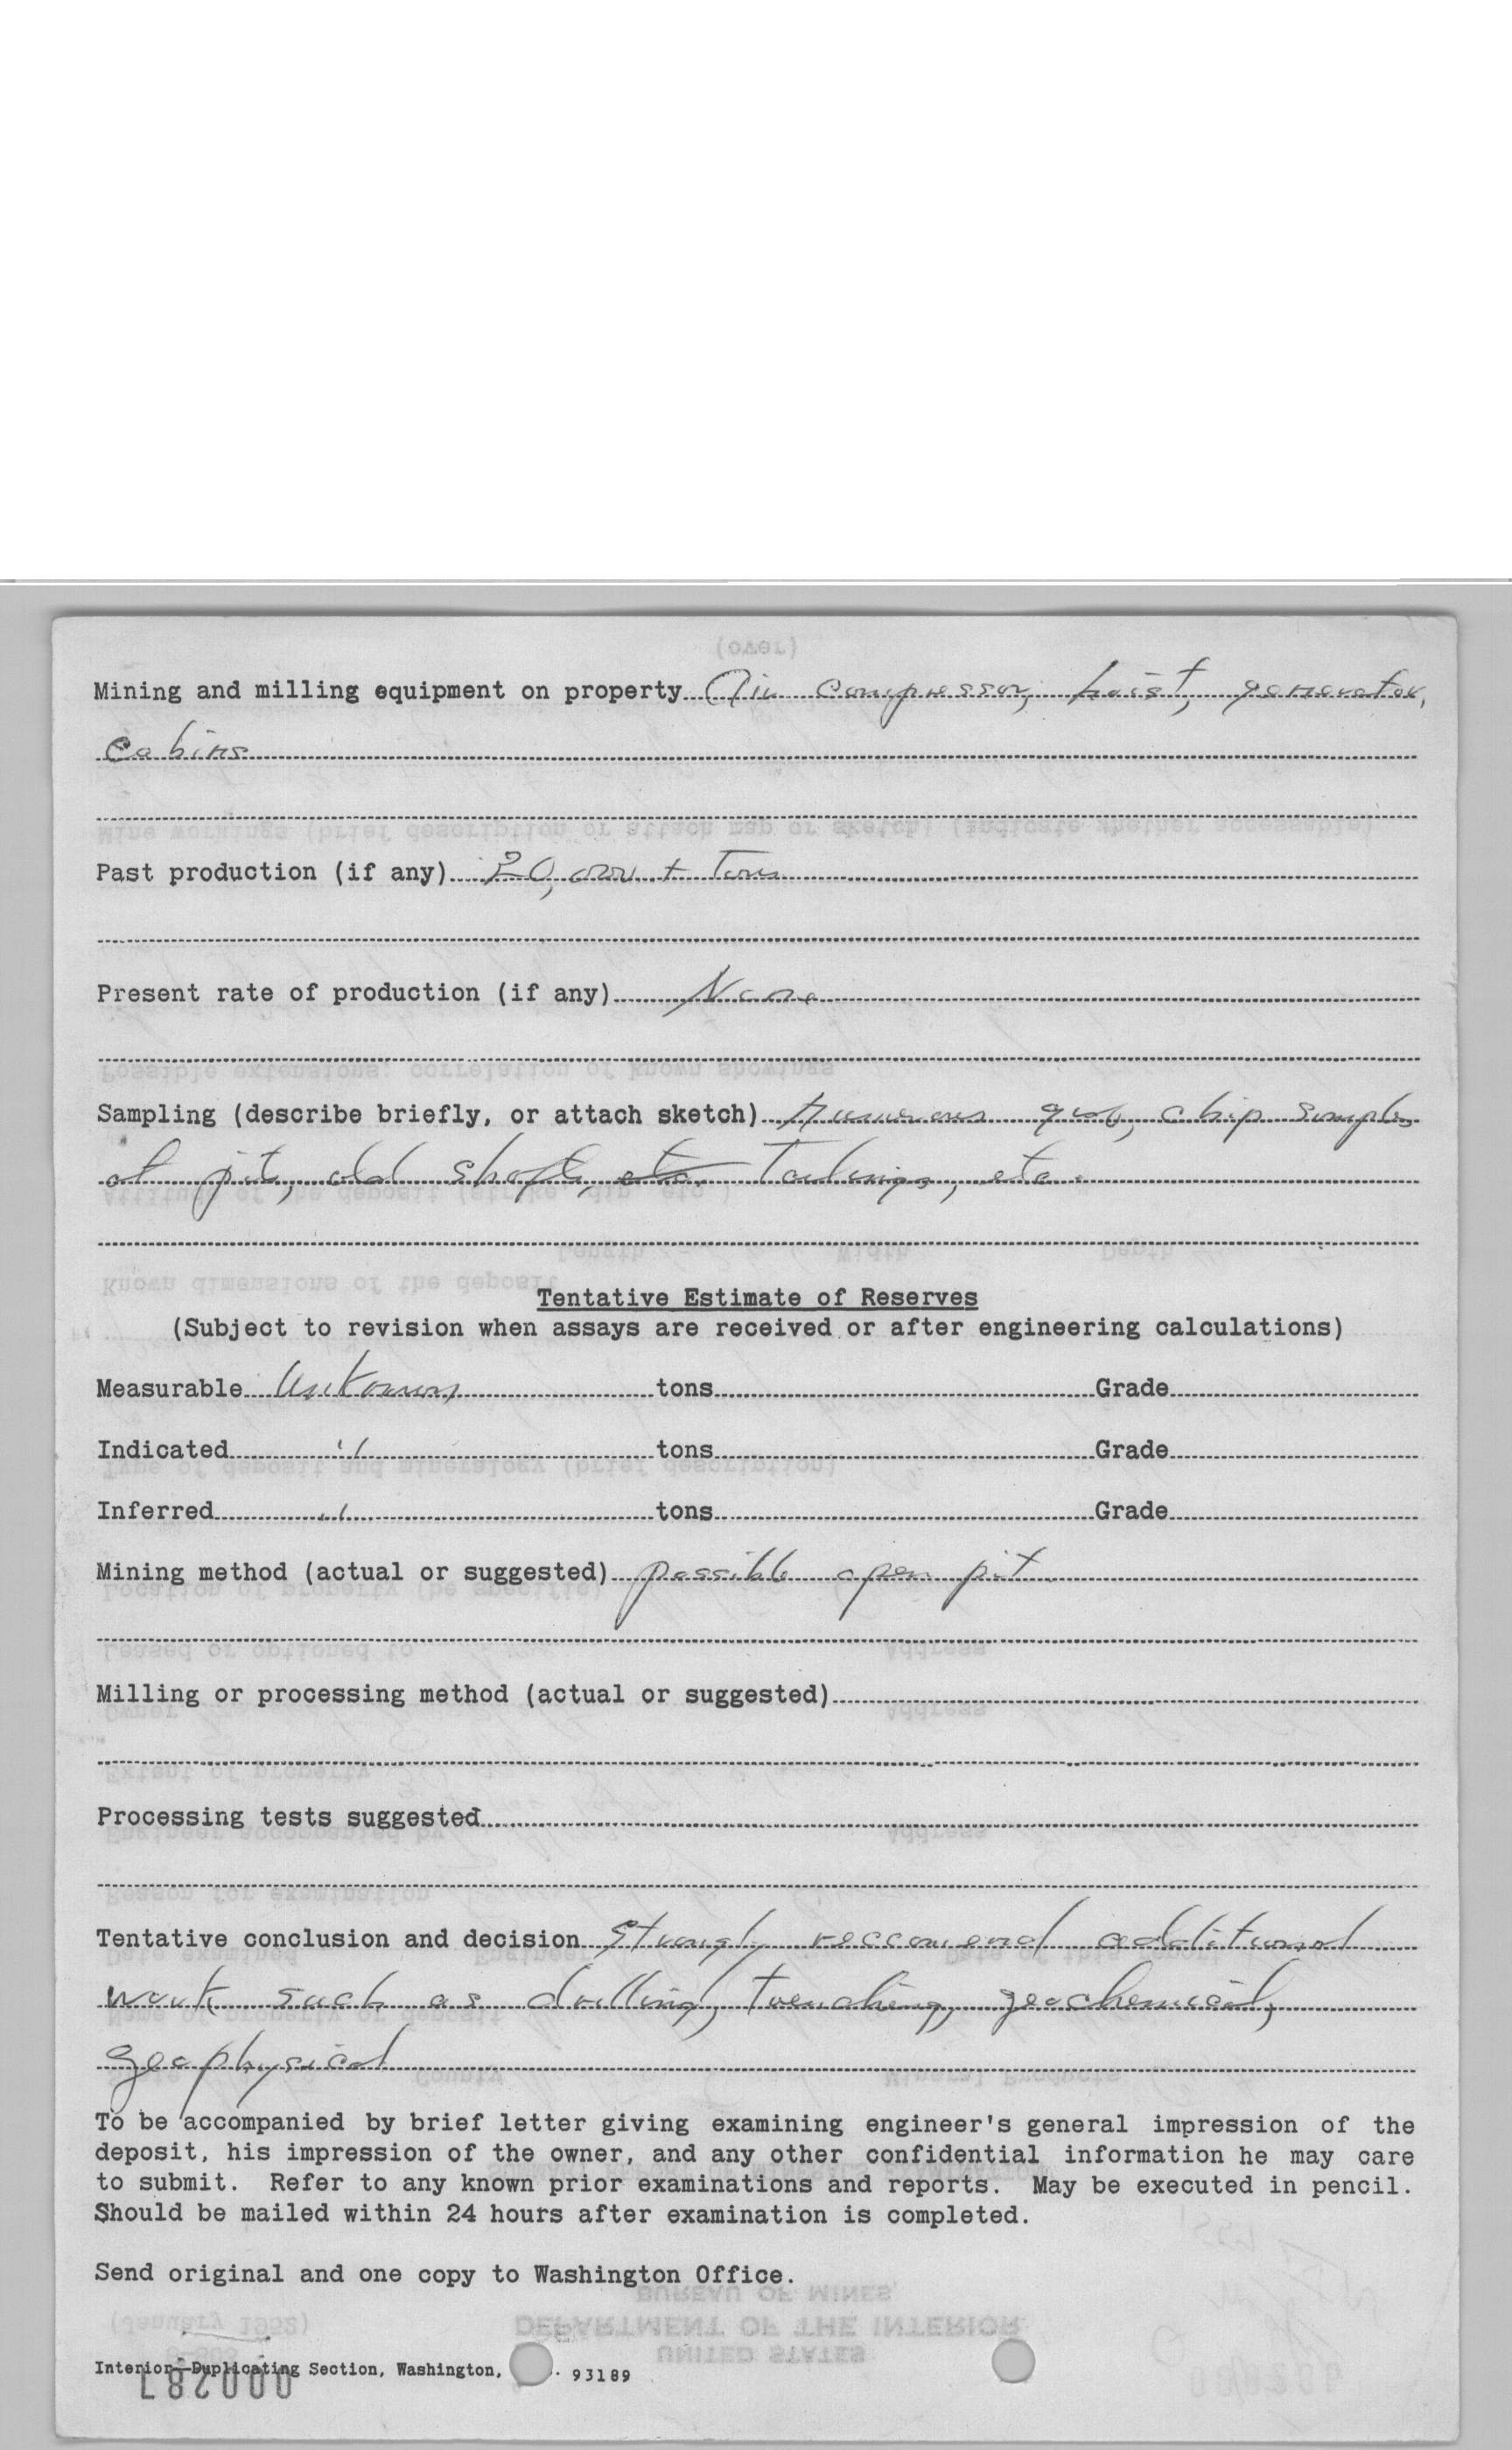 Mining and milling equipment on property Air compressor, hoist, generator,
cabins
Past production (if any) 20,000 + Tons
Present rate of production (if any) None
Sampling (describe briefly, or attach sketch) Numerous grab, chip samples
at pits, old shafts, etc. Tailings, etc.
Tentative Estimate of Reserves
(Subject to revision when assays are received or after engineering calculations)
Measurable Unknown tons Grade
Indicated " tons Grade
Inferred " tons Grade
Mining method (actual or suggested) possible open pit
Milling or processing method (actual or suggested)
Processing tests suggested
Tentative conclusion and decision Strongly reccomend additional
work such as drilling, trenching, geochemical,
geophysical
To be accompanied by brief letter giving examining engineer's general impression of the
deposit, his impression of the owner, and any other confidential information he may care
to submit. Refer to any known prior examinations and reports. May be executed in pencil.
Should be mailed within 24 hours after examination is completed.
Send original and one copy to Washington Office.
Interior—Duplicating Section, Washington, . 93189